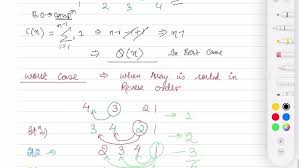 B.O → Comp^n
C(n) = n-1 Σ i=1 1 ⇒ n-1-1+1 ⇒ n-1
⇒ O(n) In Best Case
worst case → when Array is sorted in
Reverse order
4 3 2 1
→ 1
3 4 2 1
→ 2
2 3 4 1
→ 3